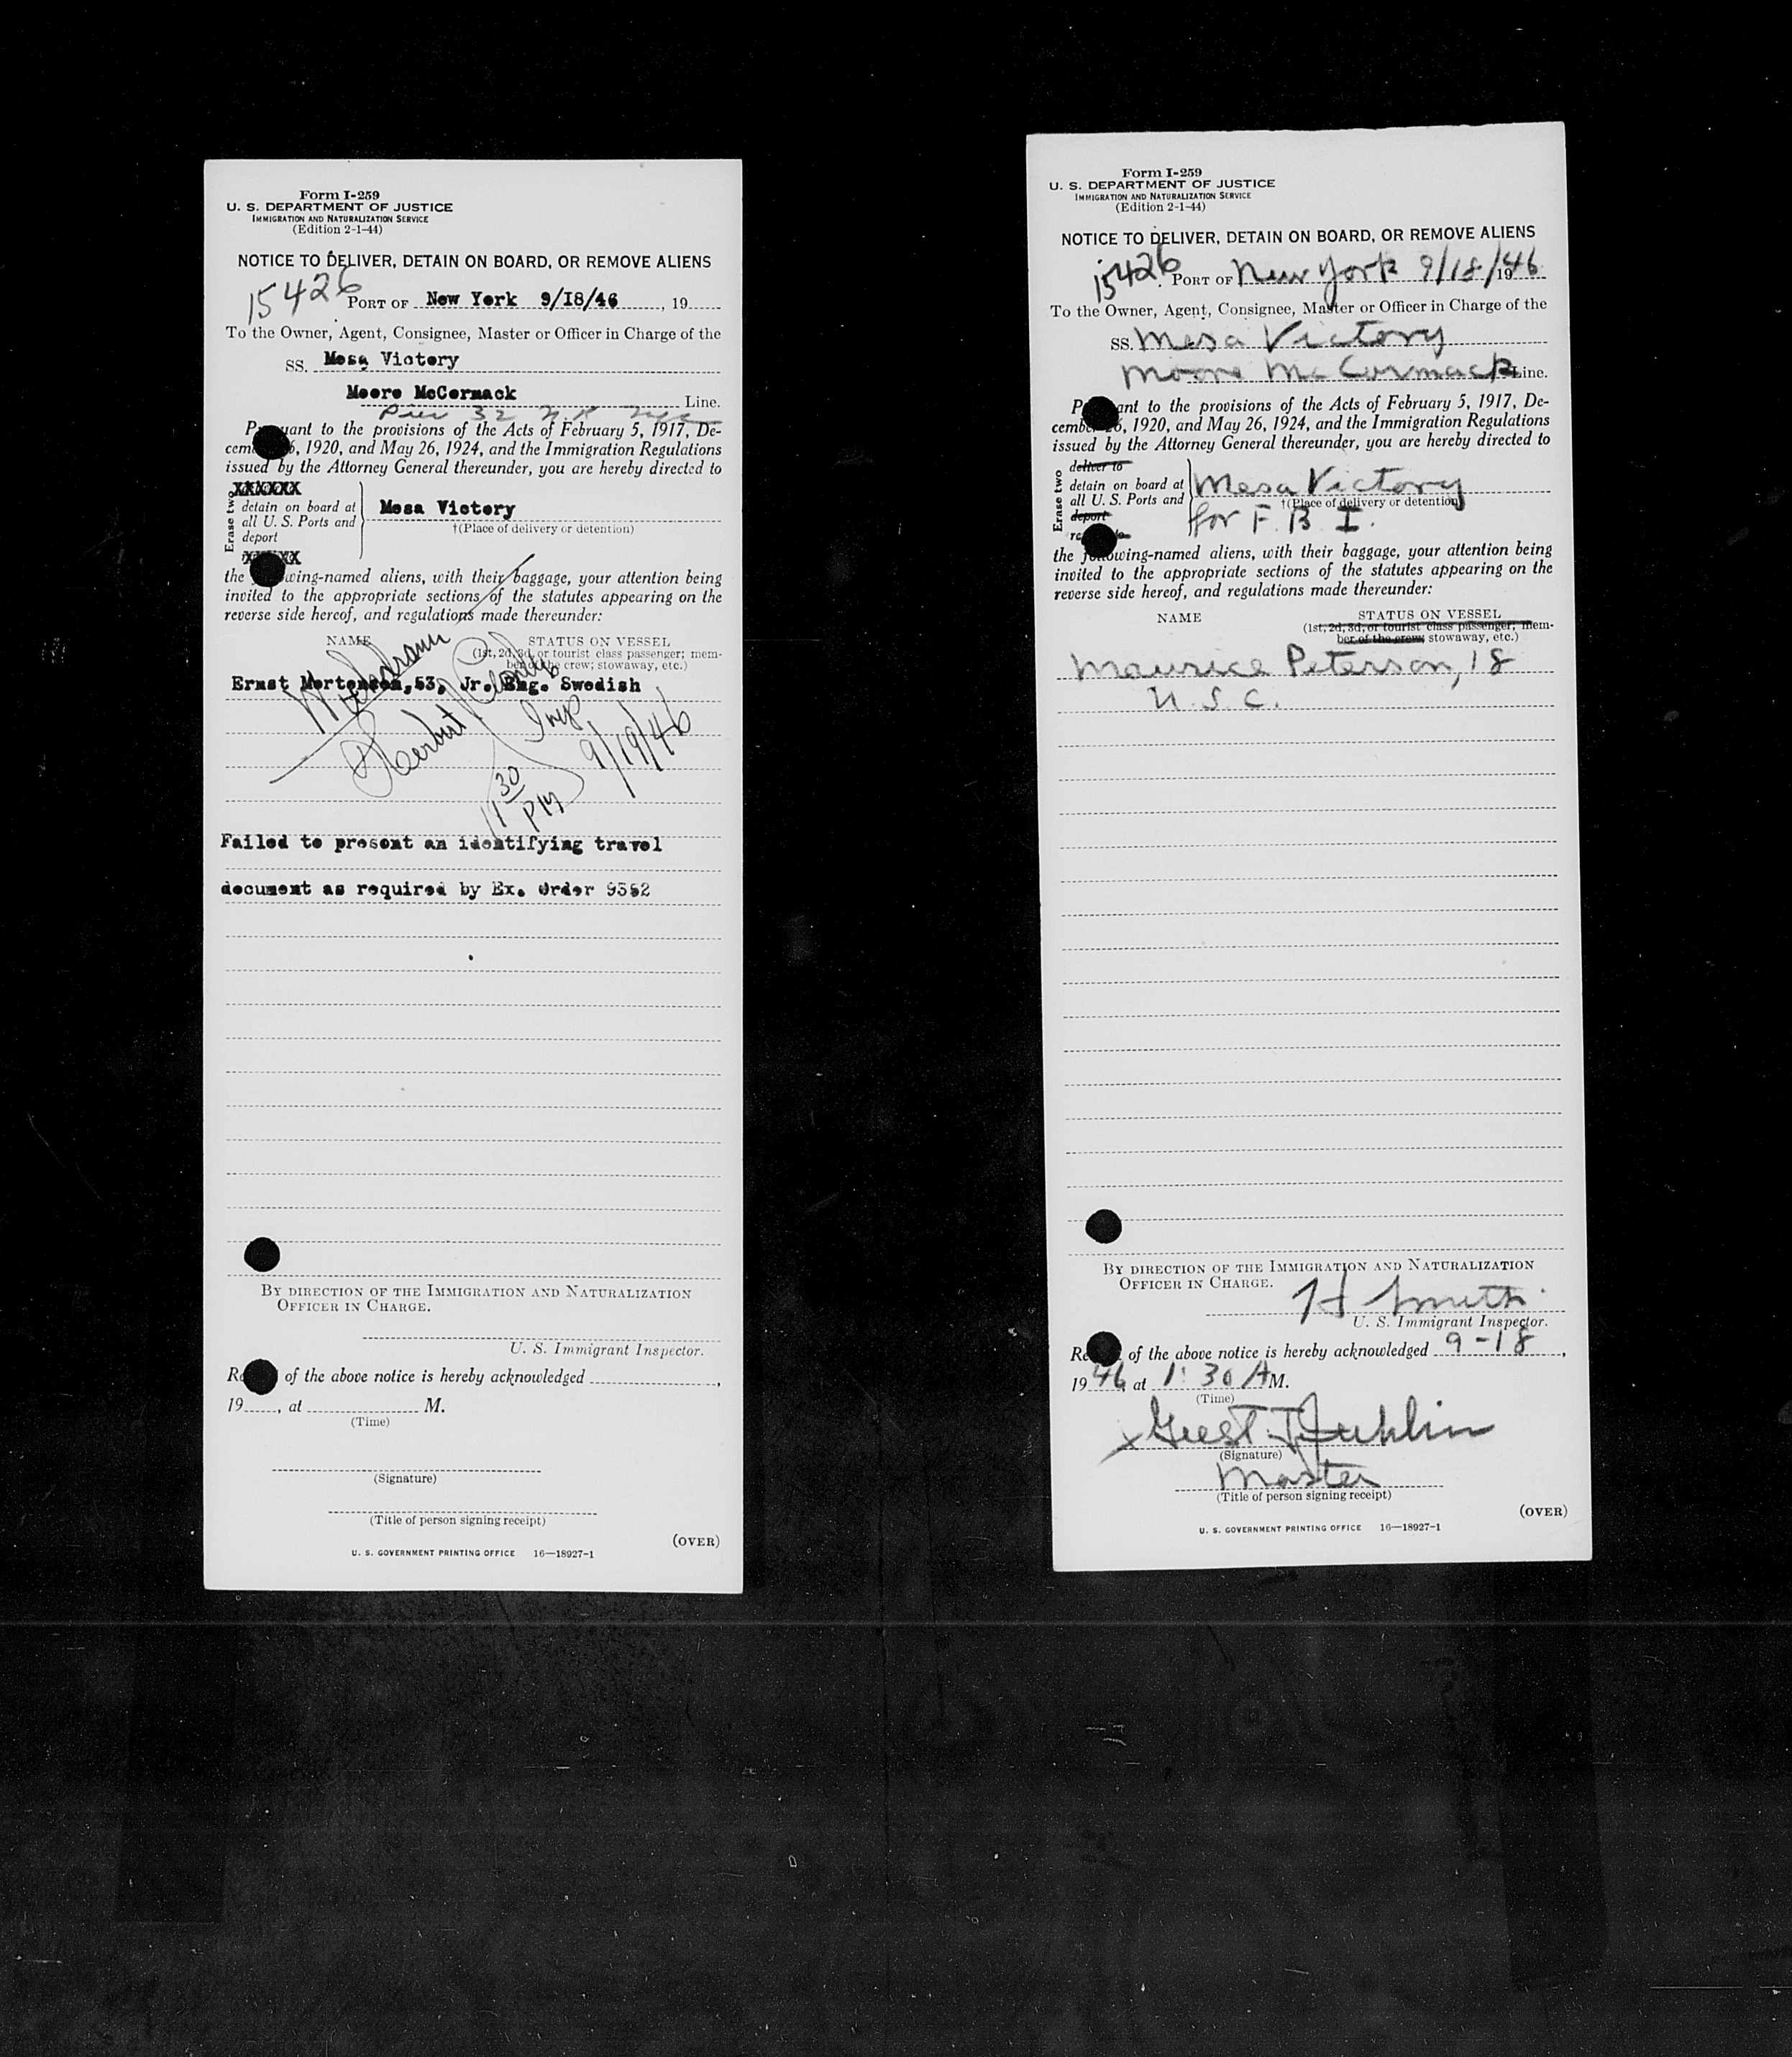 Form I-259
U. S. DEPARTMENT OF JUSTICE
IMMIGRATION AND NATURALIZATION SERVICE
(Edition 2-1-44)
NOTICE TO DELIVER, DETAIN ON BOARD, OR REMOVE ALIENS
15426
PORT OF New York 9/18/46, 19
To the Owner, Agent, Consignee, Master or Officer in Charge of the
SS. Mesa Victory
Moore McCormack Line.
Pier 32 N.R.
P uant to the provisions of the Acts of February 5, 1917, De-
cem 6, 1920, and May 26, 1924, and the Immigration Regulations
issued by the Attorney General thereunder, you are hereby directed to
Erase two
XXXXXX
detain on board at
all U. S. Ports and
deport
Mesa Victory
†(Place of delivery or detention)
the wing-named aliens, with their baggage, your attention being
invited to the appropriate sections of the statutes appearing on the
reverse side hereof, and regulations made thereunder:
NAME
STATUS ON VESSEL
(1st, 2d, 3d, or tourist class passenger; mem-
ber of the crew; stowaway, etc.)
Ernst Mortensen, 53, Jr. Eng. Swedish
Herbert
Insp
9/19/46
11 30 PM
Failed to present an identifying travel
document as required by Ex. Order 9352
BY DIRECTION OF THE IMMIGRATION AND NATURALIZATION
OFFICER IN CHARGE.
U. S. Immigrant Inspector.
Re of the above notice is hereby acknowledged ,
19 , at M.
(Time)
(Signature)
(Title of person signing receipt)
(OVER)
U. S. GOVERNMENT PRINTING OFFICE 16—18927-1
Form I-259
U. S. DEPARTMENT OF JUSTICE
IMMIGRATION AND NATURALIZATION SERVICE
(Edition 2-1-44)
NOTICE TO DELIVER, DETAIN ON BOARD, OR REMOVE ALIENS
15426
PORT OF New York 9/18/1946
To the Owner, Agent, Consignee, Master or Officer in Charge of the
SS. Mesa Victory
Moore McCormack Line.
P ant to the provisions of the Acts of February 5, 1917, De-
cemb 6, 1920, and May 26, 1924, and the Immigration Regulations
issued by the Attorney General thereunder, you are hereby directed to
Erase two
deliver to
detain on board at
all U. S. Ports and
deport
Mesa Victory
†(Place of delivery or detention)
for F. B. I.
the following-named aliens, with their baggage, your attention being
invited to the appropriate sections of the statutes appearing on the
reverse side hereof, and regulations made thereunder:
NAME
STATUS ON VESSEL
(1st, 2d, 3d, or tourist class passenger; mem-
ber of the crew; stowaway, etc.)
Maurice Peterson, 18
U.S.C.
BY DIRECTION OF THE IMMIGRATION AND NATURALIZATION
OFFICER IN CHARGE.
H Smith
U. S. Immigrant Inspector.
Re of the above notice is hereby acknowledged 9-18,
1946, at 1:30 A M.
(Time)
(Signature)
Master
(Title of person signing receipt)
(OVER)
U. S. GOVERNMENT PRINTING OFFICE 16—18927-1